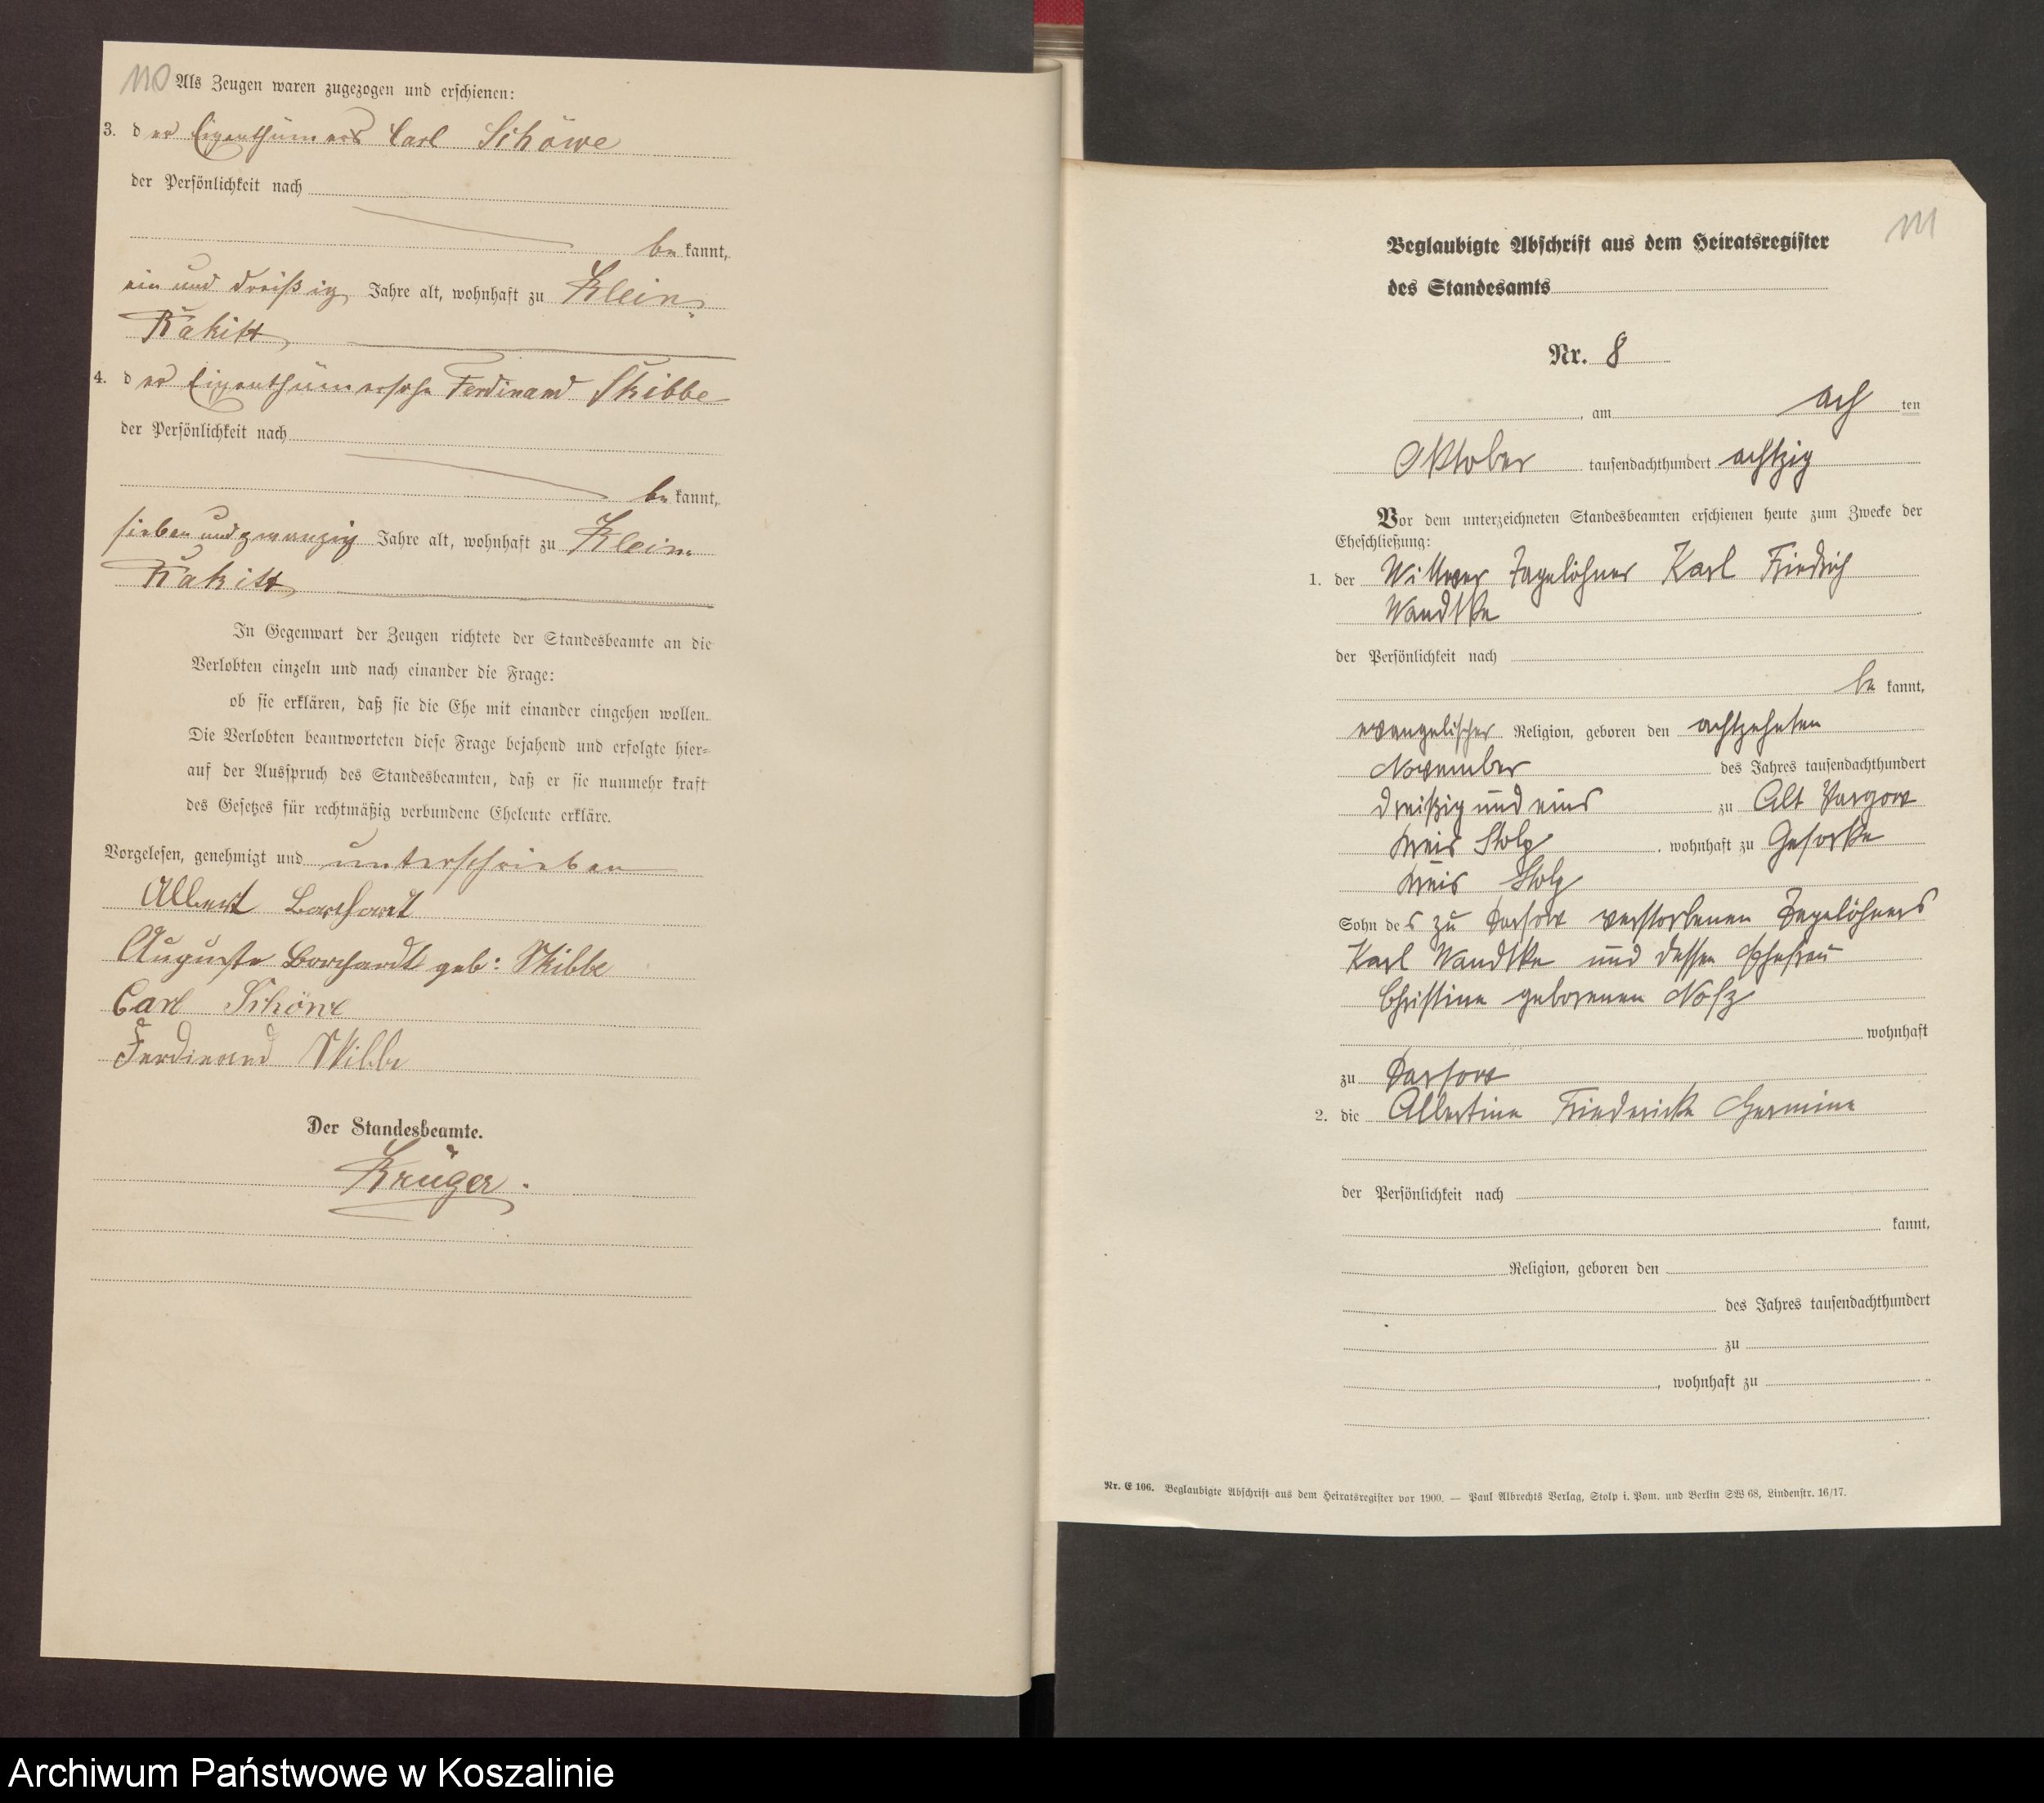 110
Als Zeugen waren zugezogen und erschienen:
3. der Eigenthümers Carl Schöwe
der Persönlichkeit nach
be kannt,
ein und dreißig Jahre alt, wohnhaft zu Klein-
Rakitt
4. der Eigenthümersohn Ferdinand Skibbe
der Persönlichkeit nach
be kannt,
sieben und zwanzig Jahre alt, wohnhaft zu Klein-
Rakitt
In Gegenwart der Zeugen richtete der Standesbeamte an die
Verlobten einzeln und nach einander die Frage:
ob sie erklären, daß sie die Ehe mit einander eingehen wollen.
Die Verlobten beantworteten diese Frage bejahend und erfolgte hier-
auf der Ausspruch des Standesbeamten, daß er sie nunmehr kraft
des Gesetzes für rechtmäßig verbundene Eheleute erkläre.
Vorgelesen, genehmigt und unterschrieben
Albert Borchardt
Auguste Borchardt geb: Skibbe
Carl Schöwe
Ferdinand Skibbe
Der Standesbeamte.
Krüger.
111
Beglaubigte Abschrift aus dem Heiratsregister
des Standesamts
Nr. 8
, am ach ten
Oktober tausendachthundert achtzig
Vor dem unterzeichneten Standesbeamten erschienen heute zum Zwecke der
Eheschließung:
1. der Wittwer Tagelöhner Karl Friedrich
Wandtke
der Persönlichkeit nach
be kannt,
evangelischer Religion, geboren den achtzehnten
November des Jahres tausendachthundert
dreißig und eins zu Alt Vargow
Kreis Stolp, wohnhaft zu Gesorke
Kreis Stolp
Sohn des zu Darsow verstorbenen Tagelöhners
Karl Wandtke und dessen Ehefrau
Christine geborenen Nosz
wohnhaft
zu Darsow
2. die Albertine Friedericke Hermine
der Persönlichkeit nach
kannt,
Religion, geboren den
des Jahres tausendachthundert
zu
, wohnhaft zu
Nr. E 106. Beglaubigte Abschrift aus dem Heiratsregister vor 1900. — Paul Albrechts Verlag, Stolp i. Pom. und Berlin SW 68, Lindenstr. 16/17.
Archiwum Państwowe w Koszalinie